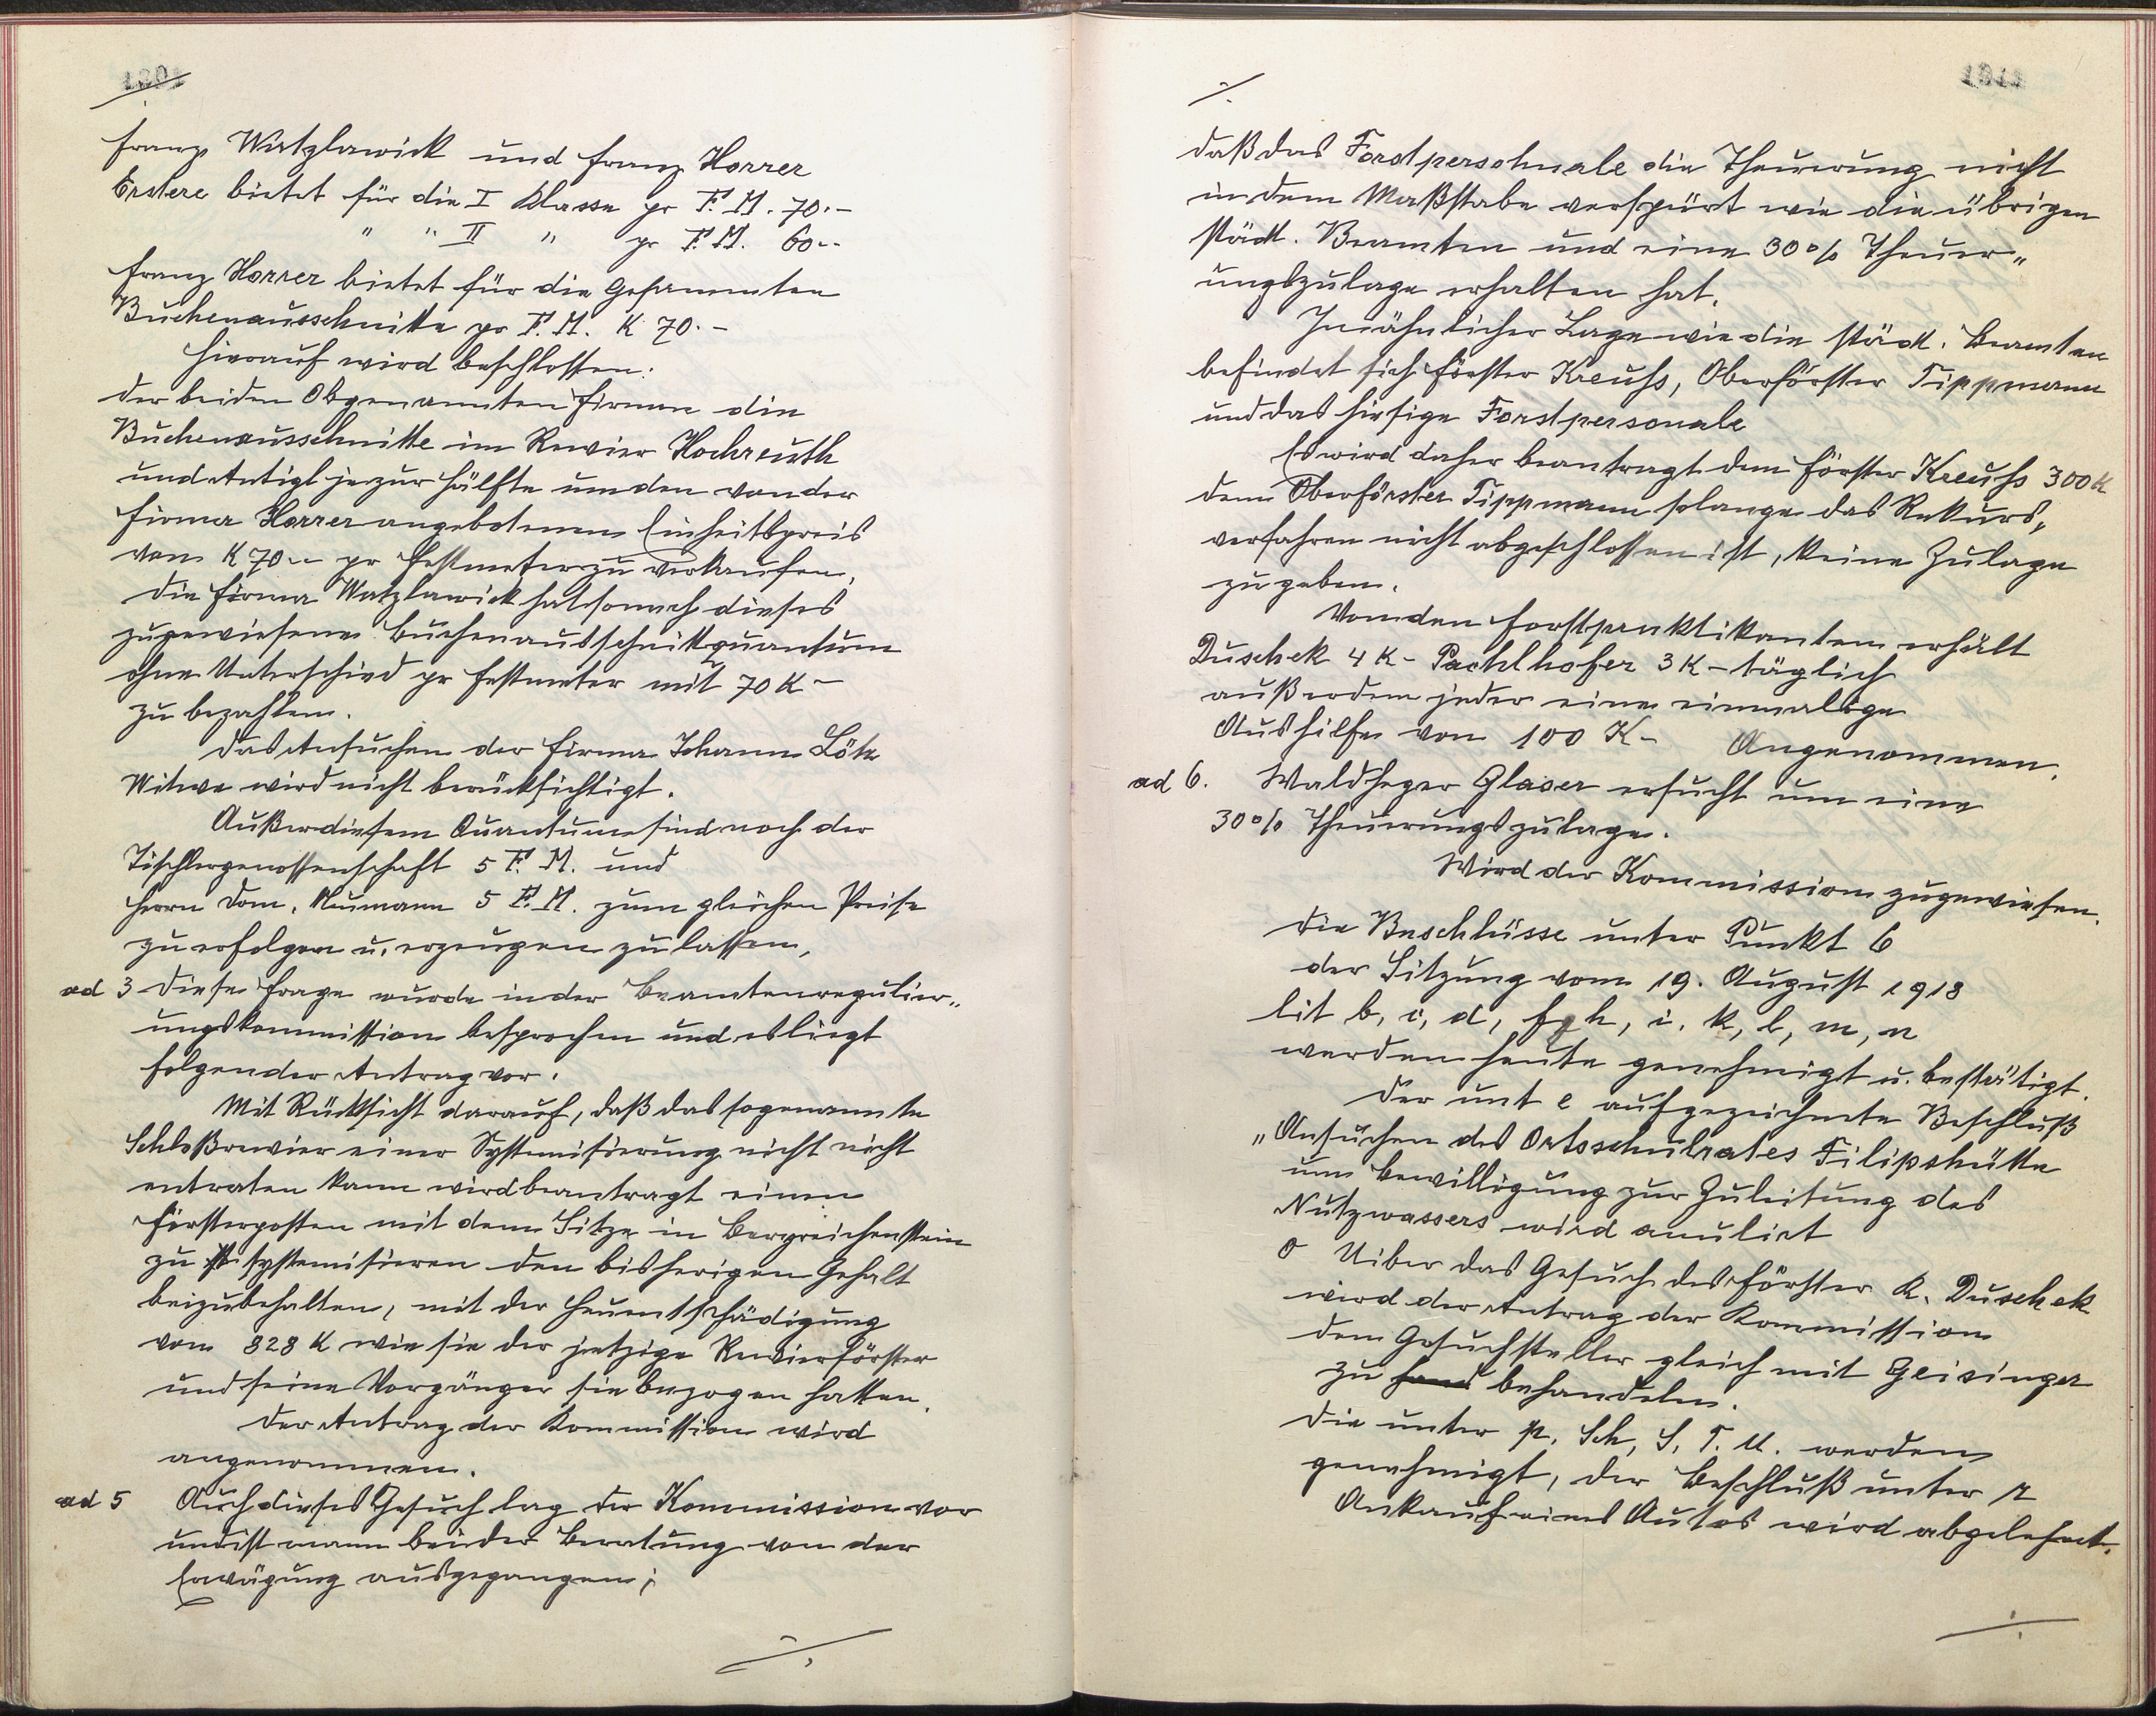 Franz Watzlawick und Franz Horrer
Erstere bietet für die I Klasse pr F. M. 70.-
" " II " pr F. M. 60.-
Franz Horrer bietet für die Gesammten
Buchenausschnitte pr F. M. K 70.-
Hierauf wird beschlossen:
der beiden Obgenannten Firmen die
Buchenausschnitte im Revier Hochreuth
und Antigl je zur Hälfte um den von der
Firma Horrer angebotenen Einheitspreis
von K 70.- pr Festmeter zu verkaufen,
die Firma Watzlawick hat sonach dieses
zugewiesene Buchenausschnittquantum
ohne Unterschied pr Festmeter mit 70 K -
zu bezahlen.
Das Ansuchen der Firma Johann Löte
Witwe wird nicht berücksichtigt.
Außer diesem Quantum sind noch der
Tischlergenossenschaft 5 F. M. und
Herrn Dom. Neumann 5 F. M. zum gleichen Preise
zu erfolgen u. erzeugen zu lassen,
ad 3 Diese Frage wurde in der Beamtenregulier„
ungskommission besprochen und es liegt
folgender Antrag vor:
Mit Rücksicht darauf, daß das sogenannte
Schloßrevier einer Systemisierung nicht nicht
entraten kann wird beantragt einen
Försterposten mit dem Sitze in Bergreichenstein
zu systemisieren den bisherigen Gehalt
beizubehalten, mit der Heuentschädigung
von 828 K wie sie der jetzige Revierförster
und seine Vorgänger sie bezogen hatten.
Der Antrag der Kommission wird
angenommen.
ad 5 Auch dieses Gesuch lag der Kommission vor
und ist mann bei der Beratung von der
Erwägung ausgegangen;
./.
./.
daß das Forstpersohnale die Theuerung nicht
in dem Maßstabe verspürt wie die übrigen
städt. Beamten und eine 30% Theuer„
ungszulage erhalten hat.
In ähnlicher Lage wie die städt. Beamten
befindet sich Förster Kreuhs, Oberförster Tippmann
und das hiesige Forstpersonale
Es wird daher beantragt dem Förster Kreuhs 300 K
dem Oberförster Tippmann solange das Rekurs„
verfahren nicht abgeschlossen ist, keine Zulage
zu geben.
Von den Forstpraktikanten erhält
Duschek 4 K - Pachlhofer 3 K - täglich
außerdem jeder eine einmalige
Aushilfe von 100 K - Angenommen.
ad 6. Waldheger Glaser ersucht um eine
30% Theuerungszulage.
Wird der Kommission zugewiesen.
Die Beschlüsse unter Punkt 6
der Sitzung vom 19. August 1918
lit b, c, d, f g h, i, k, l, m, n
werden heute genehmigt u. bestätigt.
Der unt e aufgezeichnete Beschluß
„Ansuchen des Ortsschulrates Filipshütte
um Bewilligung zur Zuleitung des
Nutzwassers wird anulirt
o Uiber das Gesuch des Förster K. Duschek
wird der Antrag der Kommission
dem Gesuchsteller gleich mit Geisinger
zu behandeln.
Die unter p, Sch, S, T. U. werden
genehmigt, der Beschluß unter r
Ankauf eines Autos wird abgelehnt.
./.